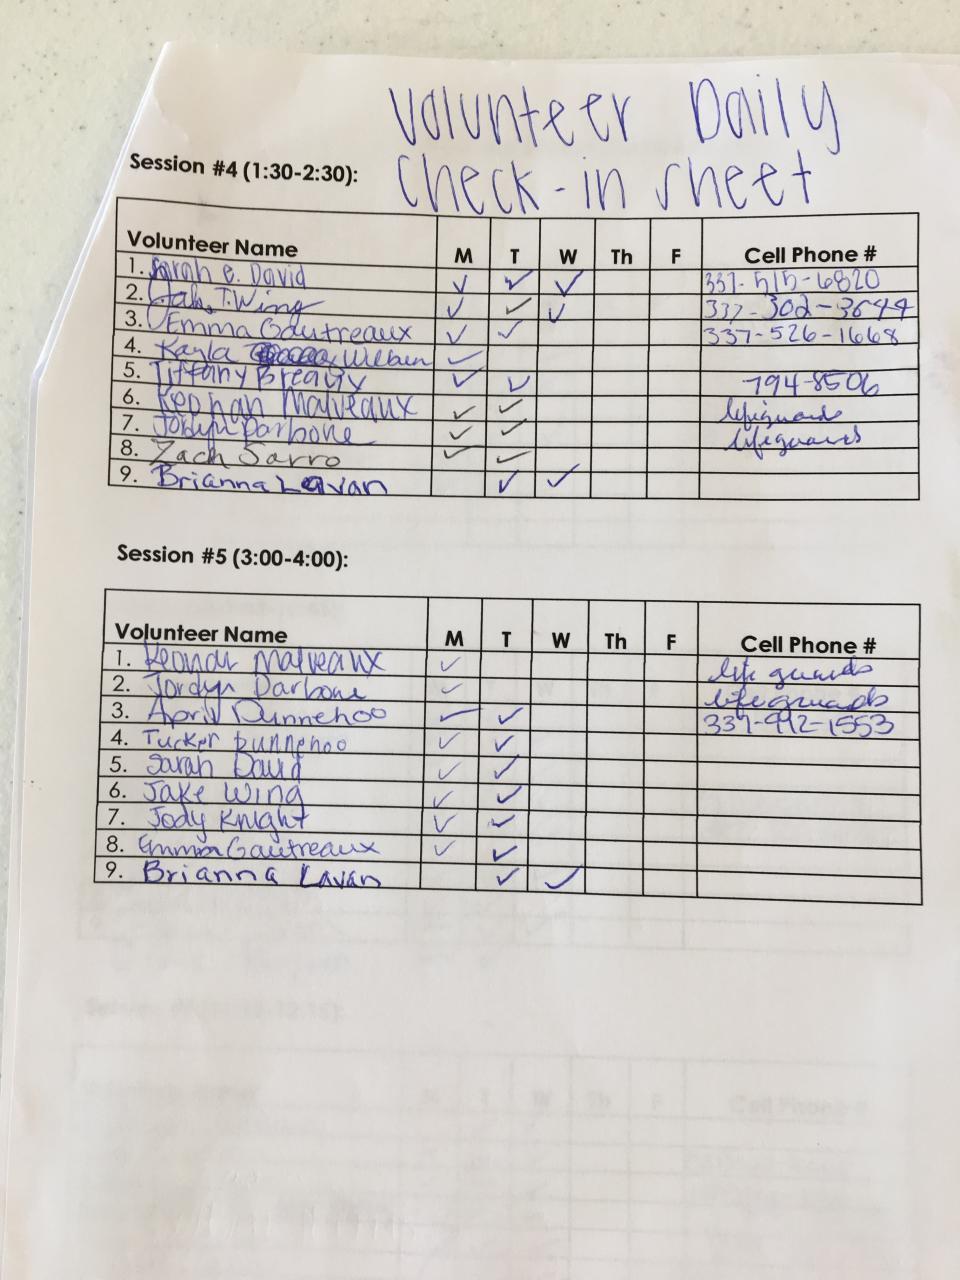 Volunteer Daily
Check-in sheet
Session #4 (1:30-2:30):
Volunteer Name M T W Th F Cell Phone #
1. Sarah e. David ✓ ✓ ✓ 337-515-6820
2. T. Wing ✓ ✓ ✓ 337-302-3644
3. Emma Gautreaux ✓ ✓ 337-526-1668
4. Kayla Wilburn ✓
5. Tiffany Breaux ✓ ✓ 794-8506
6. Keonan Malveaux ✓ ✓ lifeguards
7. Jordyn Darbone ✓ ✓ lifeguards
8. Zach Sarro ✓ ✓
9. Brianna Lavan ✓ ✓
Session #5 (3:00-4:00):
Volunteer Name M T W Th F Cell Phone #
1. Malveaux ✓ life guards
2. Jordyn Darbone ✓ lifeguards
3. April Dunnehoo ✓ ✓ 337-912-1553
4. Tucker Dunnehoo ✓ ✓
5. Sarah David ✓ ✓
6. Jake Wing ✓ ✓
7. Jody Knight ✓ ✓
8. Emma Gautreaux ✓ ✓
9. Brianna Lavan ✓ ✓